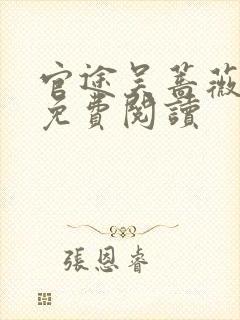 官途吴蔷薇
免費閱讀
張恩睿